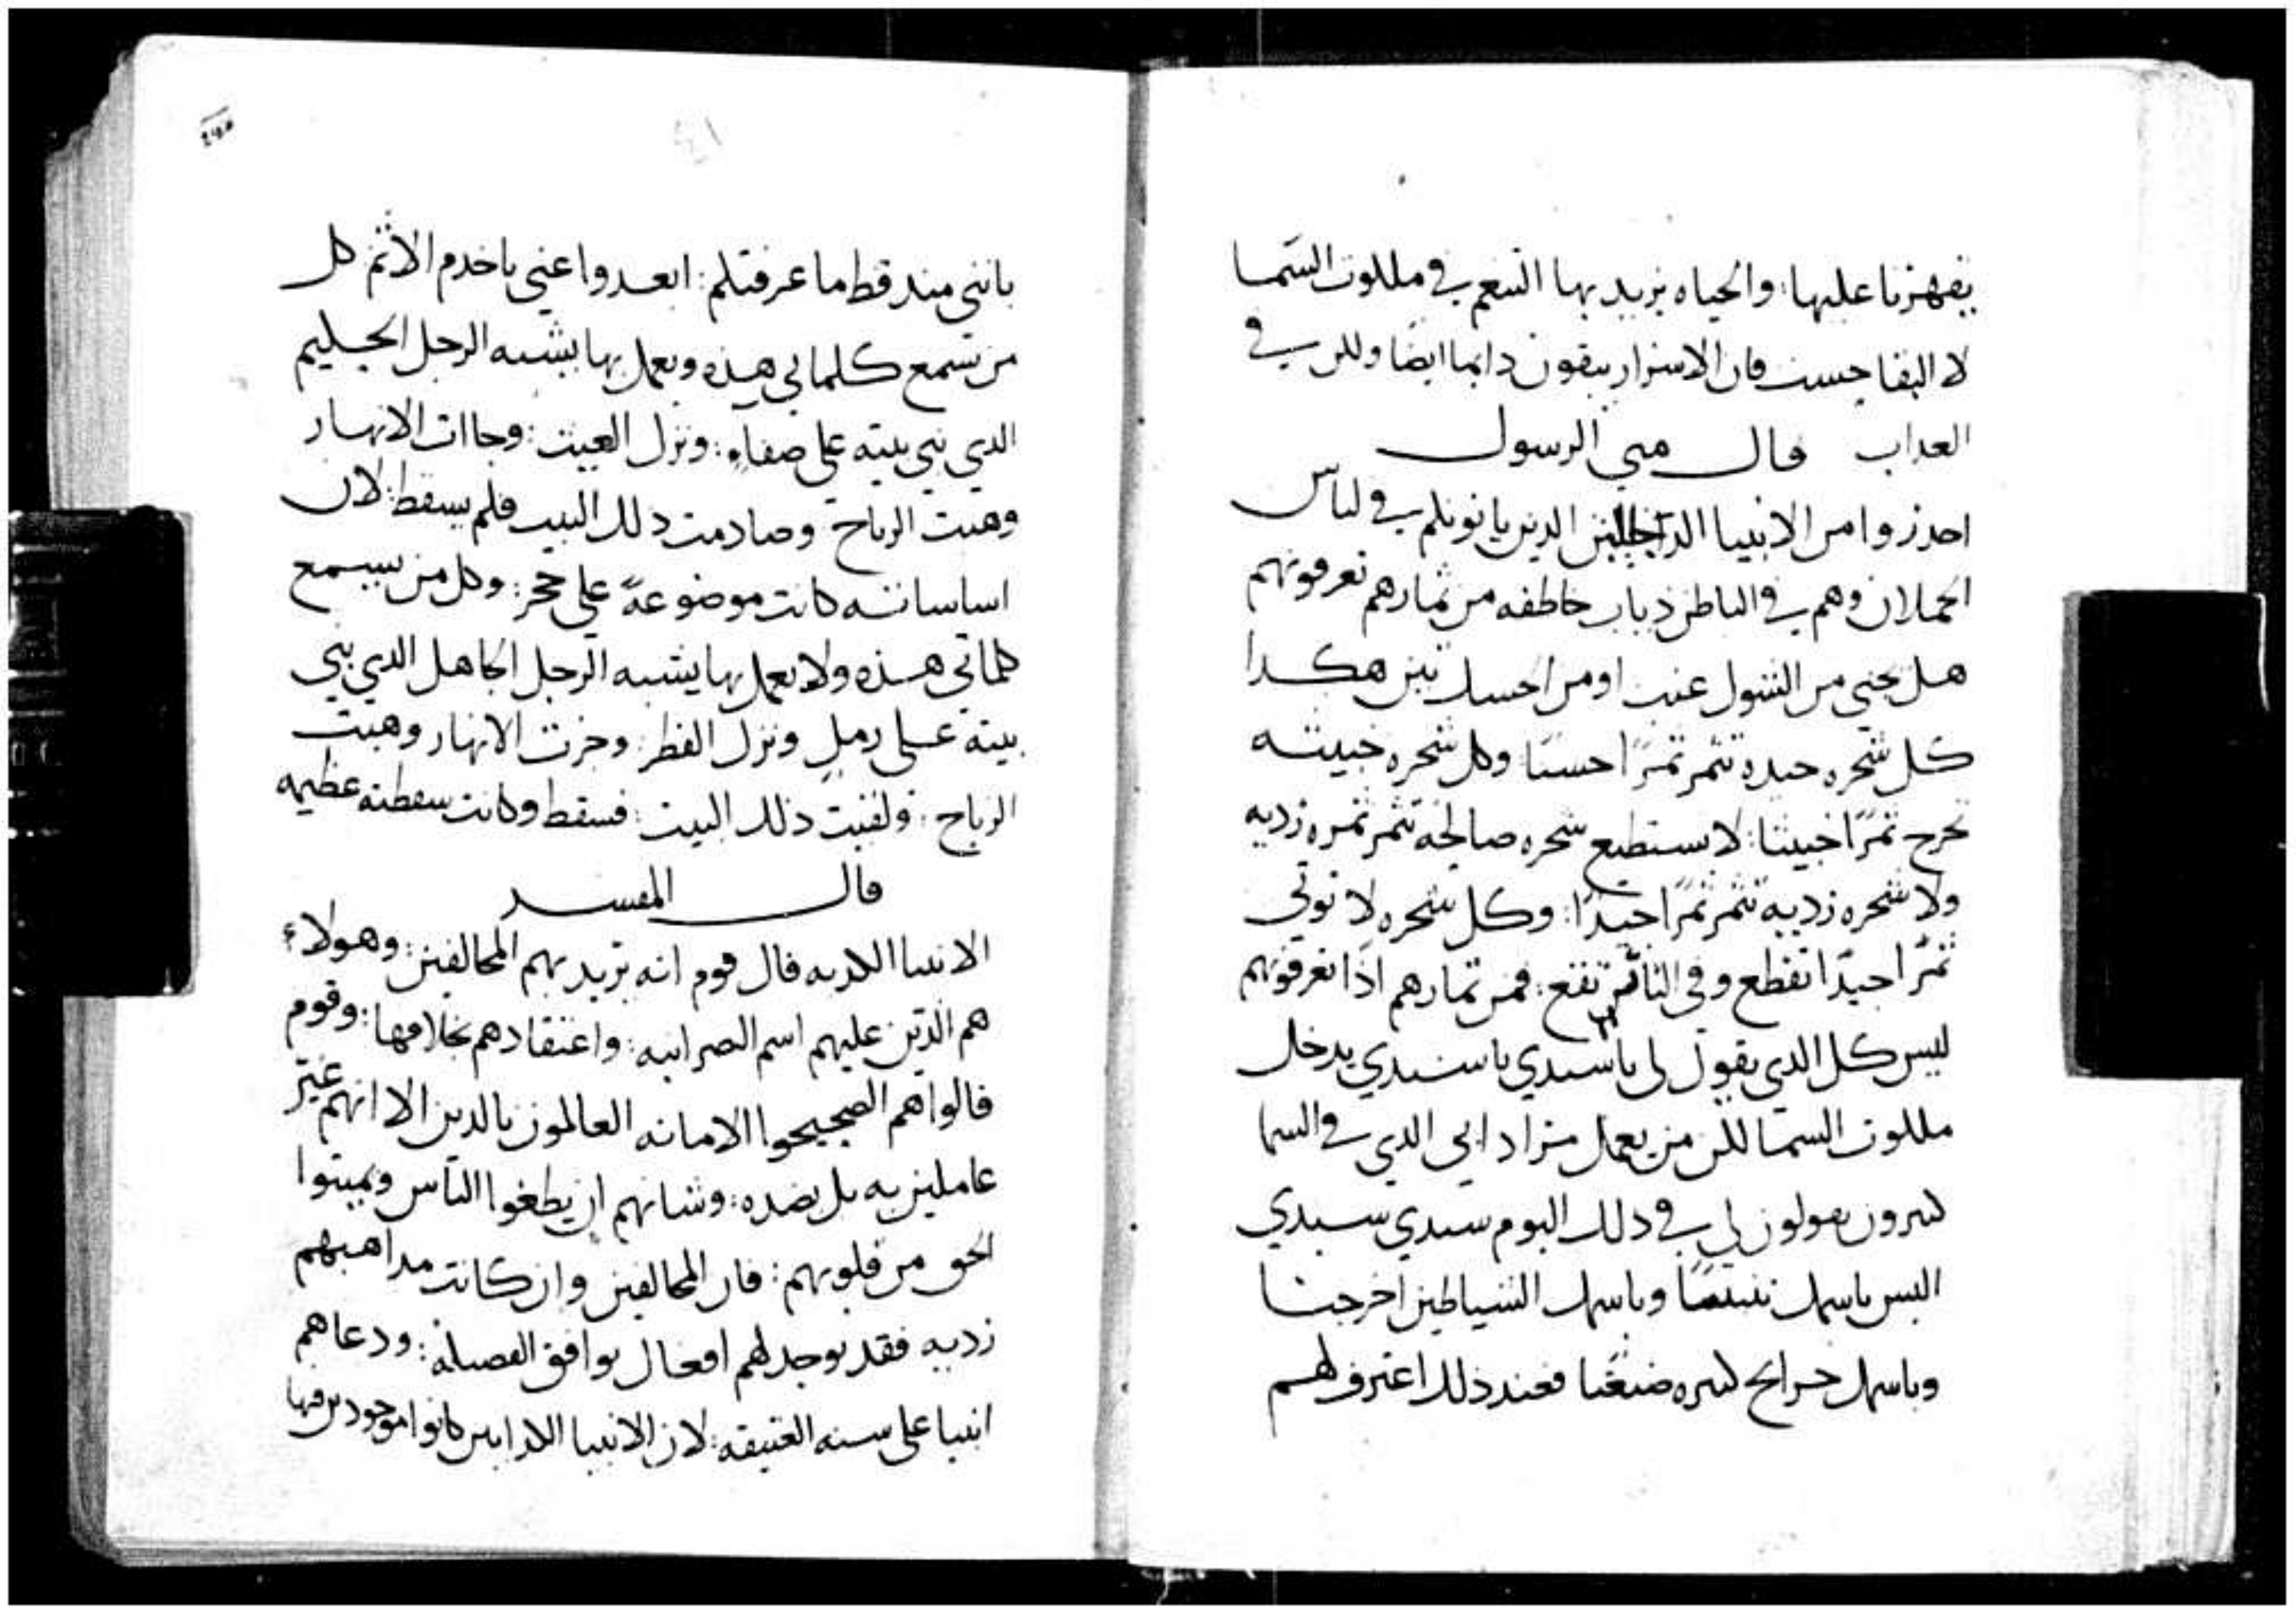 يقهرنا عليها: والحياه يريد بها التنعم في ملكوت السما
لا البقا حسب فان الاشرار يبقون دايما ايضا ولكن في
العداب قال متى الرسول
احدروا من الانبيا الدجالين الدين ياتونكم في لباس
الحملان وهم في الباطن دياب خاطفه من ثمارهم تعرفونهم
هل يجنى من الشوك عنب او من الحسك تين هكدا
كل شجره جيده تثمر ثمرًا حسنًا وكل شجره خبيثه
تخرج ثمرًا خبيثا: لا تستطيع شجره صالحه تثمر ثمره رديه
ولا شجره رديه تثمر ثمرًا جيدًا: وكل شجره لا توتي
ثمرًا جيدًا تقطع وفي النار تقع: فمن ثمارهم اذًا تعرفونهم
ليس كل الدي يقول لي يا سيدي يا سيدي يدخل
ملكوت السما لكن من يعمل مراد ابي الدي في السما
كثيرون يقولون لي في دلك اليوم سيدي سيدي
اليس باسمك تنبينا وباسمك الشياطين اخرجنا
وباسمك جرايح كثيره صنعنا فعند ذلك اعترف لهم
باننى مند قط ما عرفتكم: ابعدوا عني يا خدم الاثم كل
من تسمع كلماتي هذه ويعمل بها يشبه الرجل الحليم
الدي بني بيته على صفاه: ونزل الغيث: وجاات الانهار
وهبت الرياح وصادمت دلك البيت فلم يسقط: لان
اساساته كانت موضوعةً على حجر: وكل من يسمع
كلماتي هذه ولا يعمل بها يشبه الرجل الجاهل الدي بني
بيته على رمل ونزل القطر: وجرت الانهار وهبت
الرياح: ولقيت ذلك البيت: فسقط وكانت سقطته عظيمه
قال المفسر
الانبيا الكدبه قال قوم انه يريد بهم المخالفين: وهولاء
هم الذين عليهم اسم النصرانيه: واعتقادهم بخلافها: وقوم
قالوا هم الصحيحوا الامانه العالمون بالدين الا انهم غير
عاملين به بل بضده: وشانهم ان يطغوا الناس ويميتوا
الحق من قلوبهم: فان المخالفين وان كانت مداهبهم
رديه فقد يوجد لهم افعال توافق الفضيله: ودعاهم
انبيا على سنه العتيقه: لان الانبيا الكدابين كانوا موجودين فيها